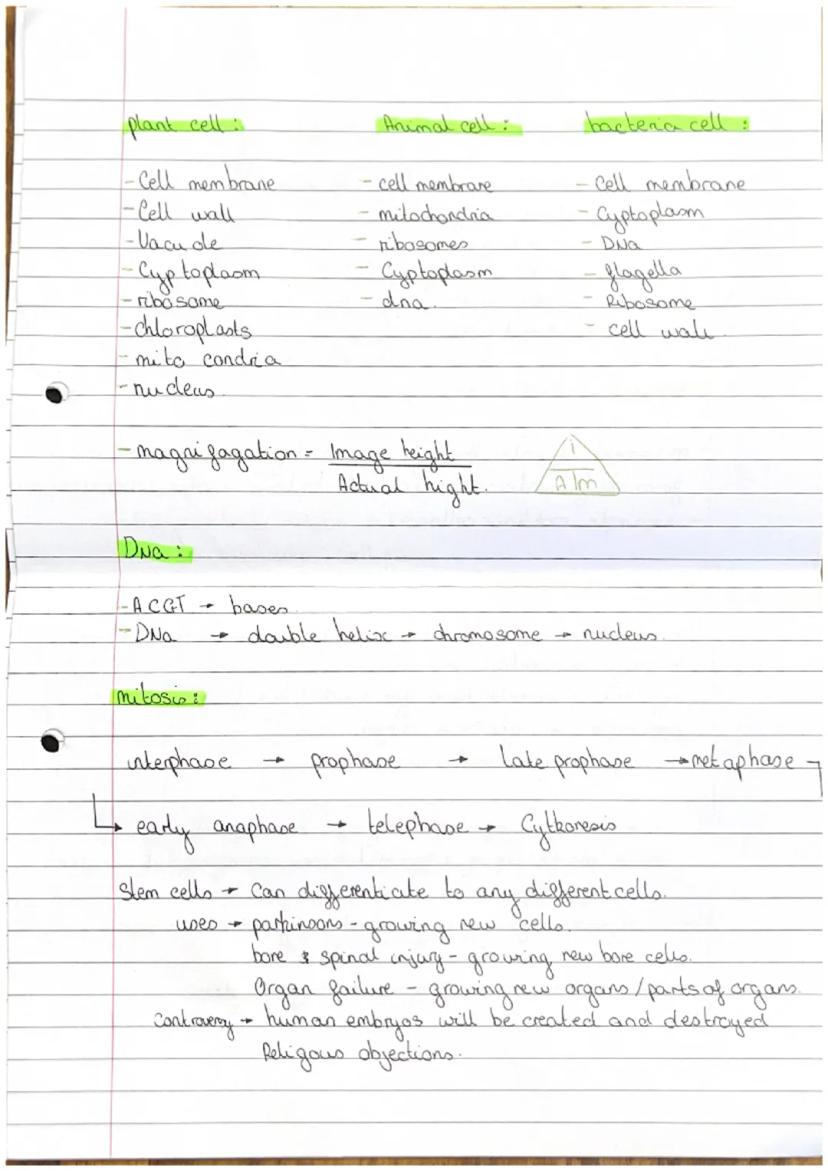 plant cell: Animal cell: bacteria cell:
- Cell membrane - cell membrane - Cell membrane
- Cell wall - mitochondria - Cyptoplasm
- Vacuole - ribosomes - DNA
- Cyptoplasm - Cyptoplasm - flagella
- ribosome - dna. - Ribosome
- chloroplasts - cell wall
- mito condria
- nucleus.
- magnifagation = Image height
Actual hight.
i
A m
DNA:
- ACGT → bases.
- DNA → double helix → chromosome → nucleus.
mitosis:
interphase → prophase → late prophase → metaphase
→ early anaphase → telephase → Cytkoresis
Stem cells → Can differenticate to any different cells.
uses → parkinsons - growing new cells.
bone & spinal injury - growing new bone cells.
Organ failure - growing new organs / parts of organs.
Controversy → human embryos will be created and destroyed
Religous objections.